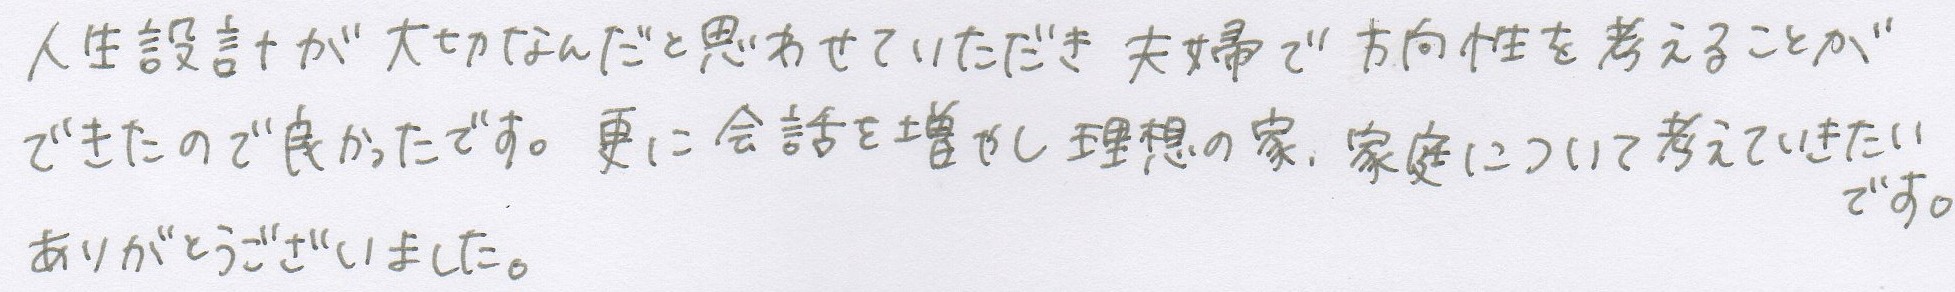 人生設計が大切なんだと思わせていただき夫婦で方向性を考えることが
できたので良かったです。更に会話を増やし理想の家、家庭について考えていきたい
です。
ありがとうございました。